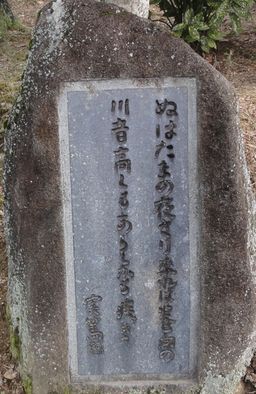 ぬばたまの夜さり来れば巻向の
川音高しもあらしかも疾き